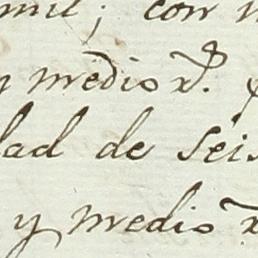 mil; con
y medio r.^s
dad de seis
y medio r